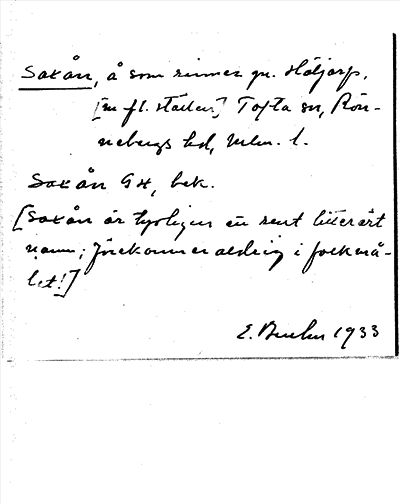 Saxån, å som rinner gm. Häljarp,
[m fl. ställen] Tofta sn, Rön-
nebergs hd, Mlm. l.
Saxån GK, bek.
[Saxån är tydligen ett rent litterärt
namn; förekommer aldrig i folkmå-
let!]
E. 1933